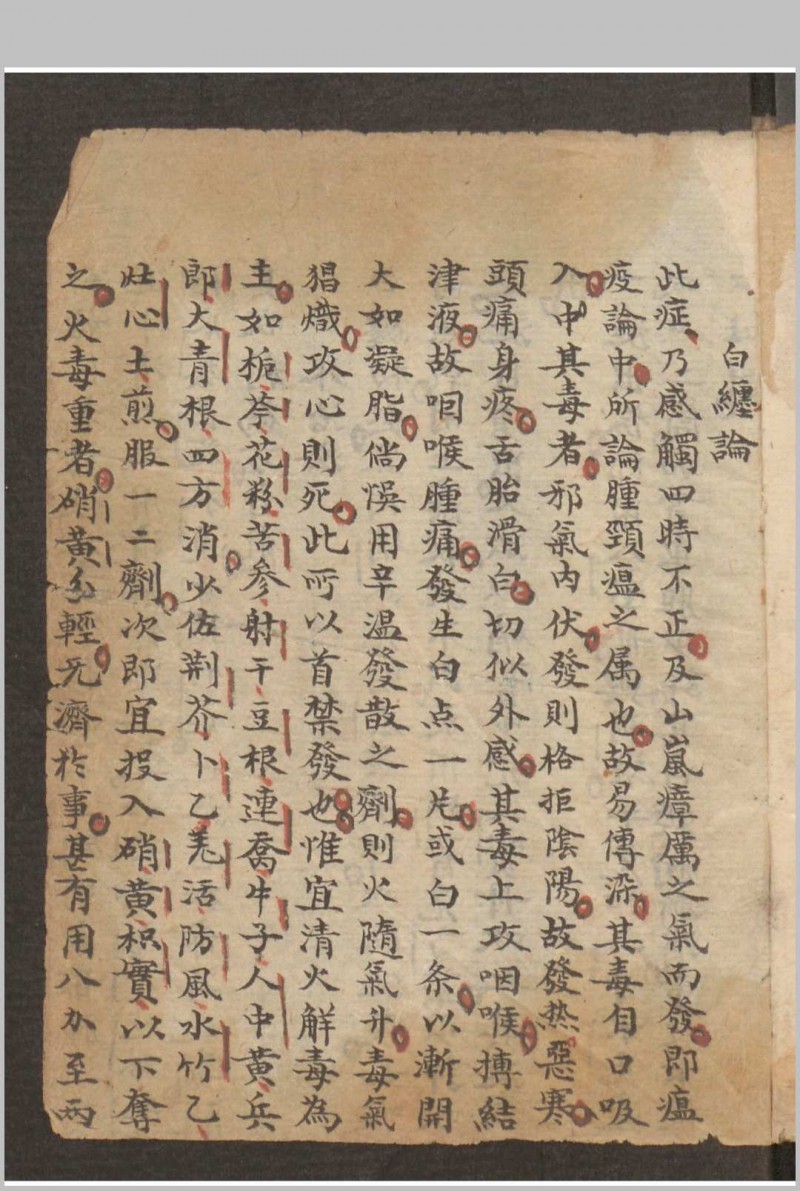 白纏論
此症乃感觸四時不正及山嵐瘴厲之氣而發即瘟
疫論中所論腫頸瘟之属也故易傳染其毒自口吸
入中其毒者邪氣内伏發則格拒陰陽故發热惡寒
頭痛身疼舌胎滑白切似外感其毒上攻咽喉摶結
津液故咽喉腫痛發生白点一片或白一条以漸開
大如凝脂倘悞用辛温發散之劑則火隨氣升毒氣
猖熾攻心則死此所以首禁發也惟宜清火解毒為
主如栀芩花粉苦参射干豆根連喬牛子人中黄兵
郎大青根四方消少佐荆芥卜乙羌活防風水竹乙
灶心土煎服一二劑次即宜投入硝黄枳實以下奪
之火毒重者硝黄分輕无濟於事甚有用八刄至両